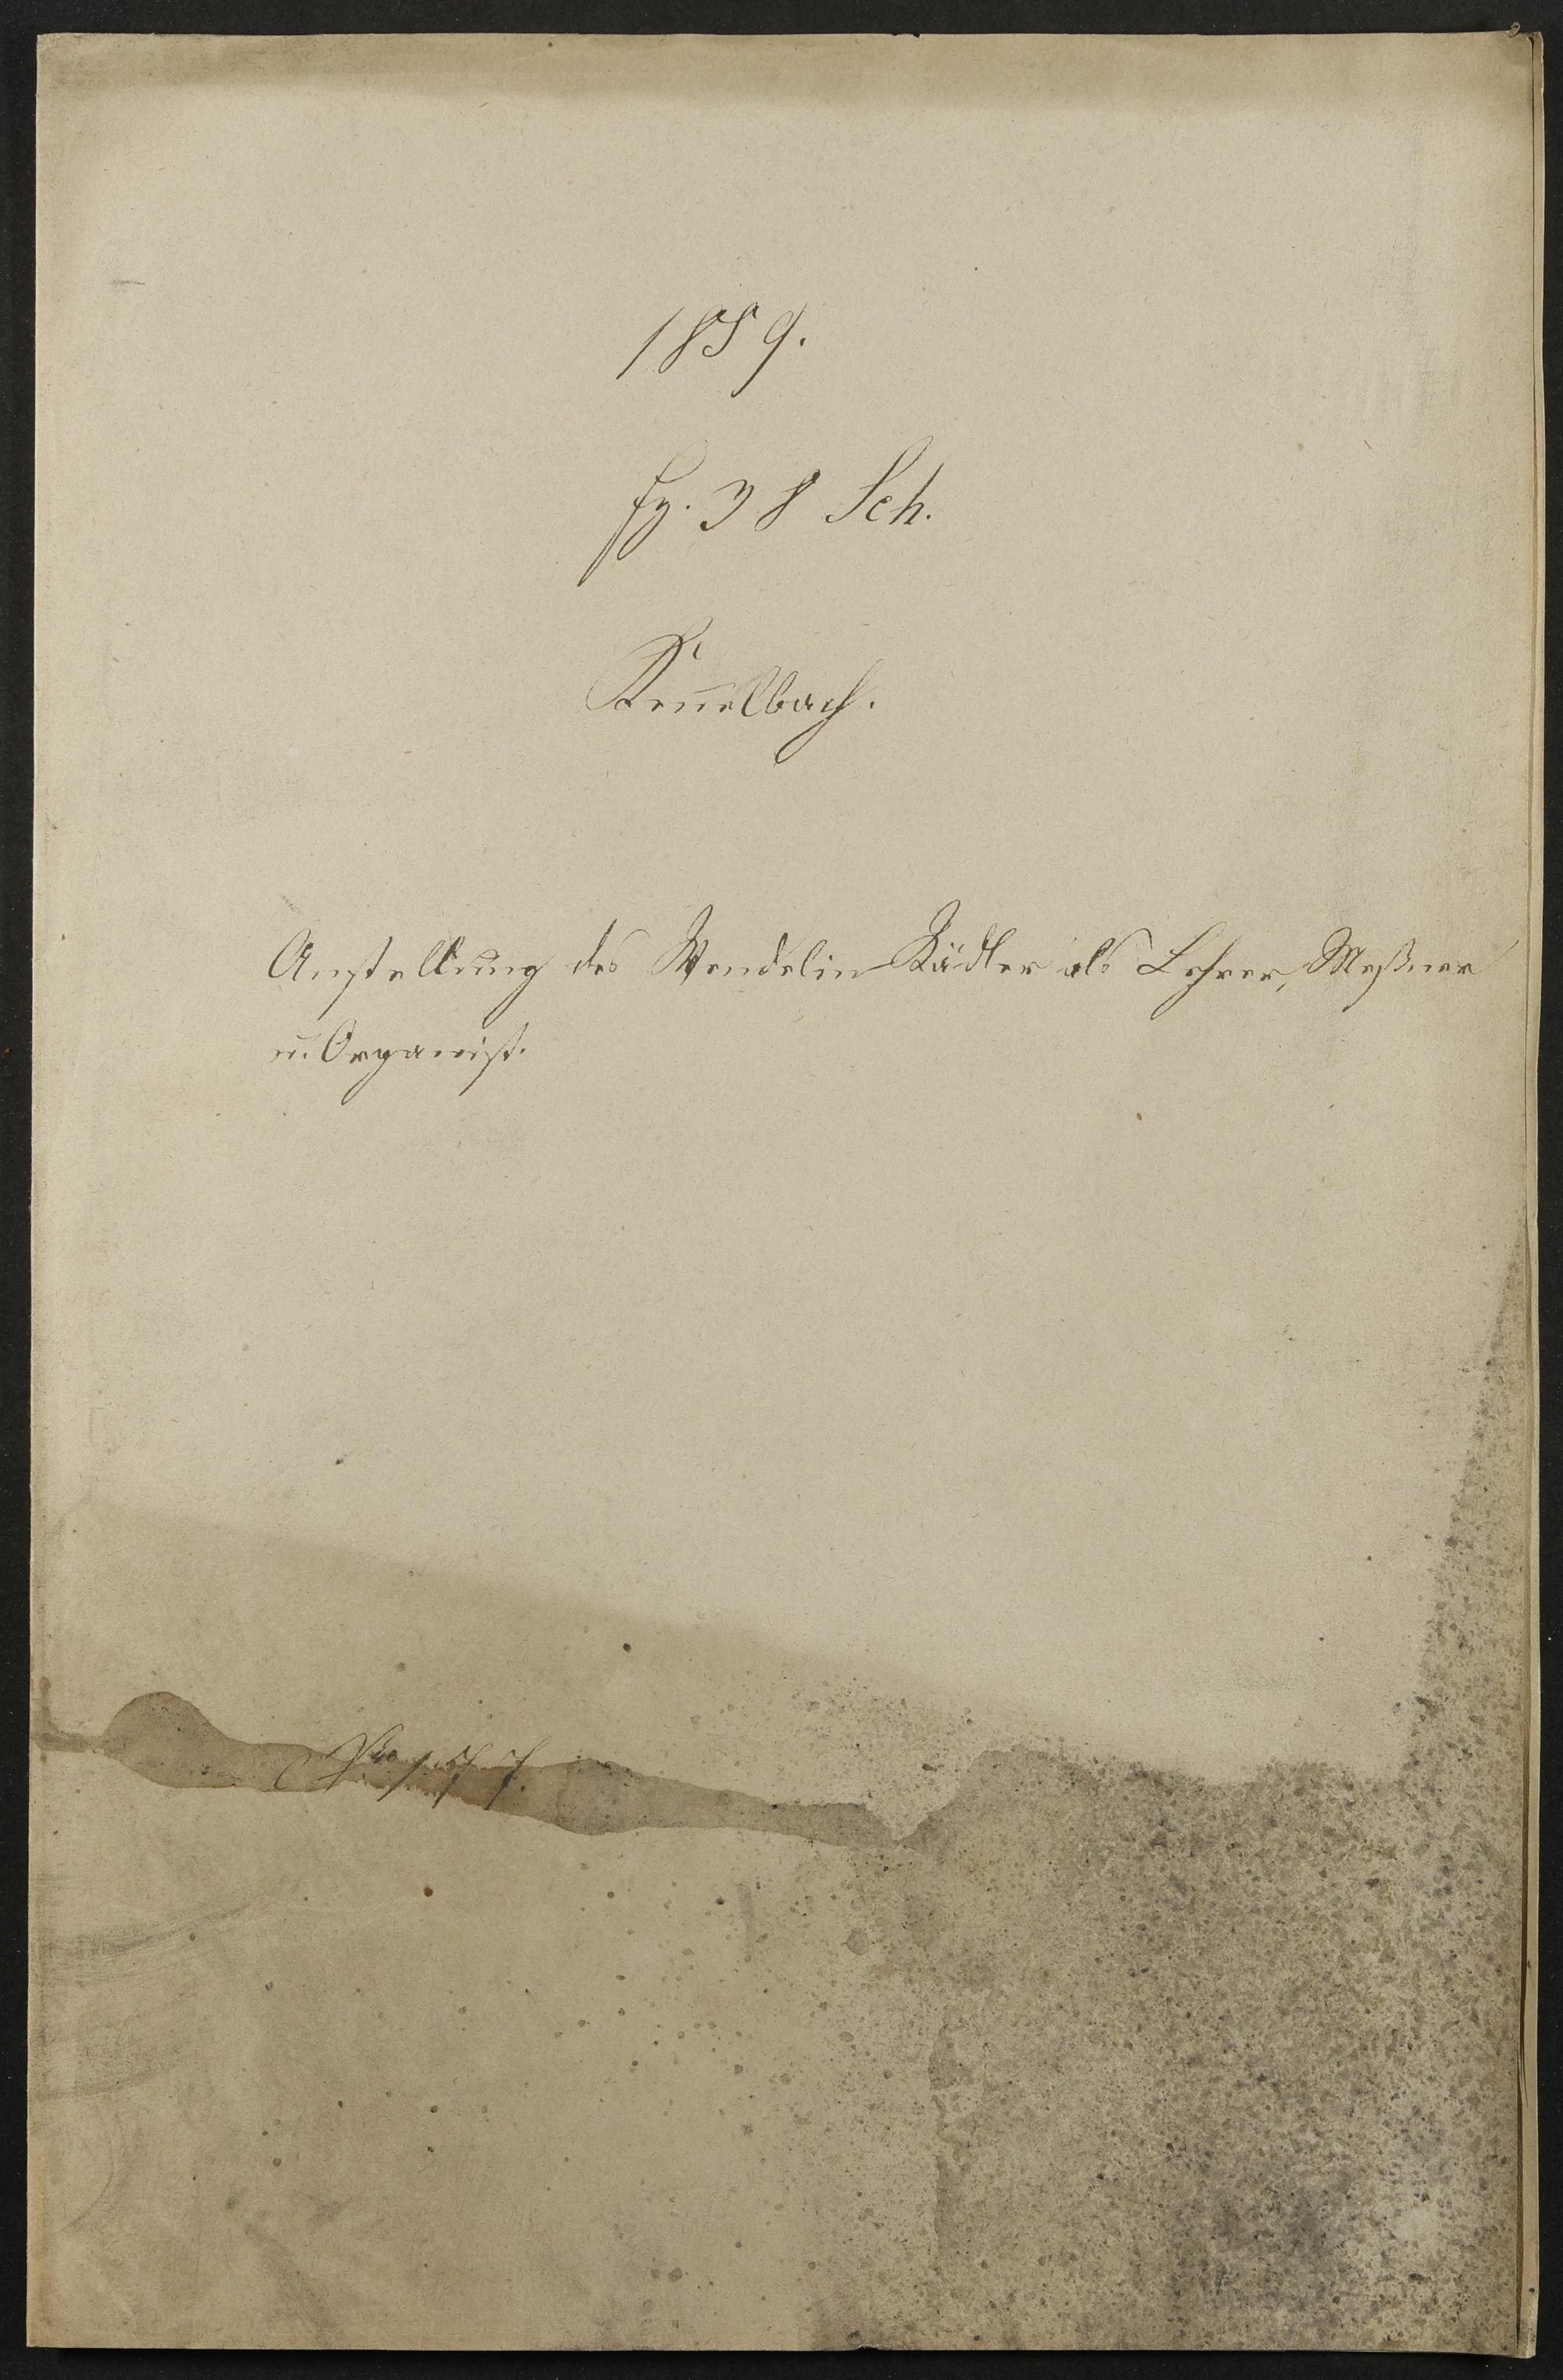 1859.
Fz. 38 Sch.
Kennelbach.
Anstellung des Wendelin Rädler als Lehrer, Meßner
u. Organist.
177.